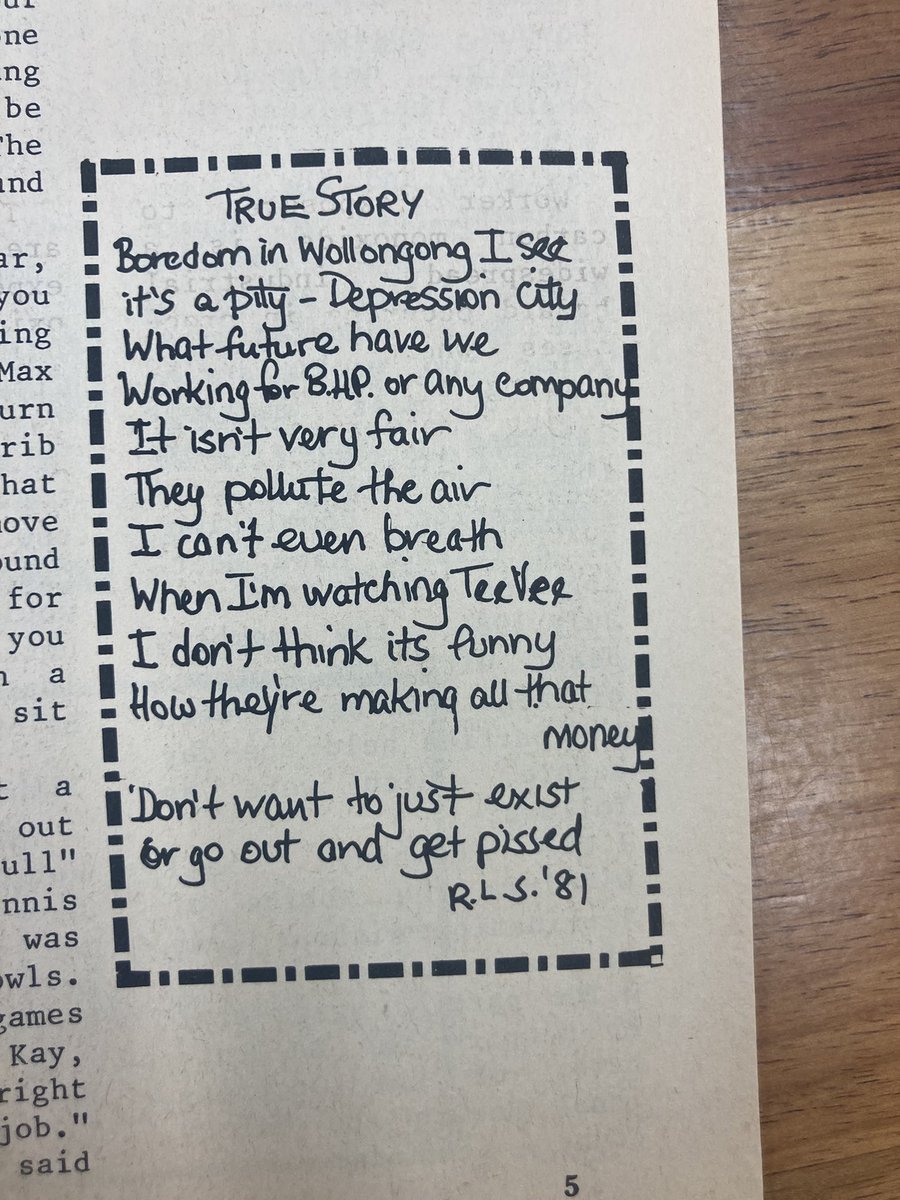 one
ng
be
The
and
ar,
you
ing
Max
urn
rib
hat
ove
ound
for
you
a
sit
a
out
ull"
nnis
was
owls.
games
Kay,
right
job."
said
TRUE STORY
Boredom in Wollongong I see
it's a pity - Depression City
What future have we
Working for B.H.P. or any company
It isn't very fair
They pollute the air
I can't even breath
When I'm watching TeeVee
I don't think its funny
How they're making all that
money
'Don't want to just exist
or go out and get pissed
R.L.S. '81
5